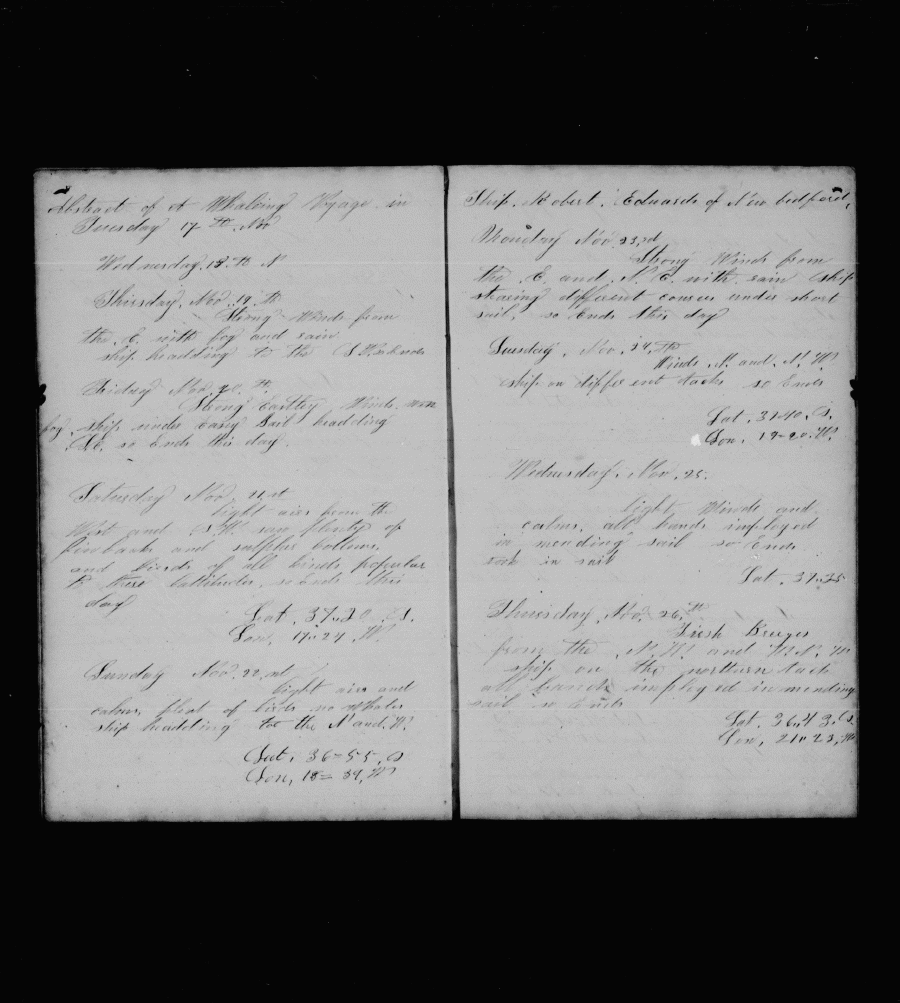 Abstract of A Whaleing Voyage in
Tuesday 17 th Nov
Wednesday 18 th N
Thirsday Nov 19 th
Strong Winds from
the E. with fog and rain
ship headding to the S
Friday Nov 20 th
Strong Eastley Winds
fog, ship under Easey Sail headding
SE. so Ends this day
Saturday Nov 21 st
light airs from the
West and S.W. saw plenty of
finbacks and sulpher bottoms
and birds of all kinds popular
to these lattitudes, so Ends this
day
Lat. 37..20 S.
Lon, 17..24 W
Sunday Nov 22, nd
light airs and
calms, plent of birds no Whales
ship headding too the N and W.
Lat, 36=55, S
Lon, 18=39, W
Ship. Robert. Edwards of New bedford,
Monday Nov 23,rd
Strong Winds from
the E and N. E. with rain Ship
stearing different courses under short
sail, so Ends this day
Tuesday, Nov, 24, th
Winds N. and N. W.
ship on different tacks so Ends
Lat. 37..40. S.
Lon, 19=20. W.
Wednesday, Nov, 25.
light Winds and
calms, all hands imployed
in mending sail so Ends
in sail
Lat. 37..35
Thursday, Nov, 26, th
Fresh Breezes
from the N. W. and W.N. W.
ship on the northurn tack
all hands imployed in mending
sail so Ends
Lat. 36..43. S.
Lon, 21..23, W